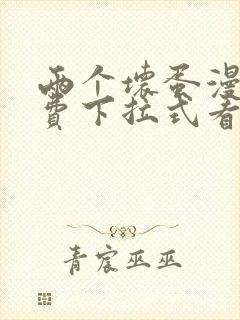 两个坏蛋漫
费下拉式看
青宸巫巫